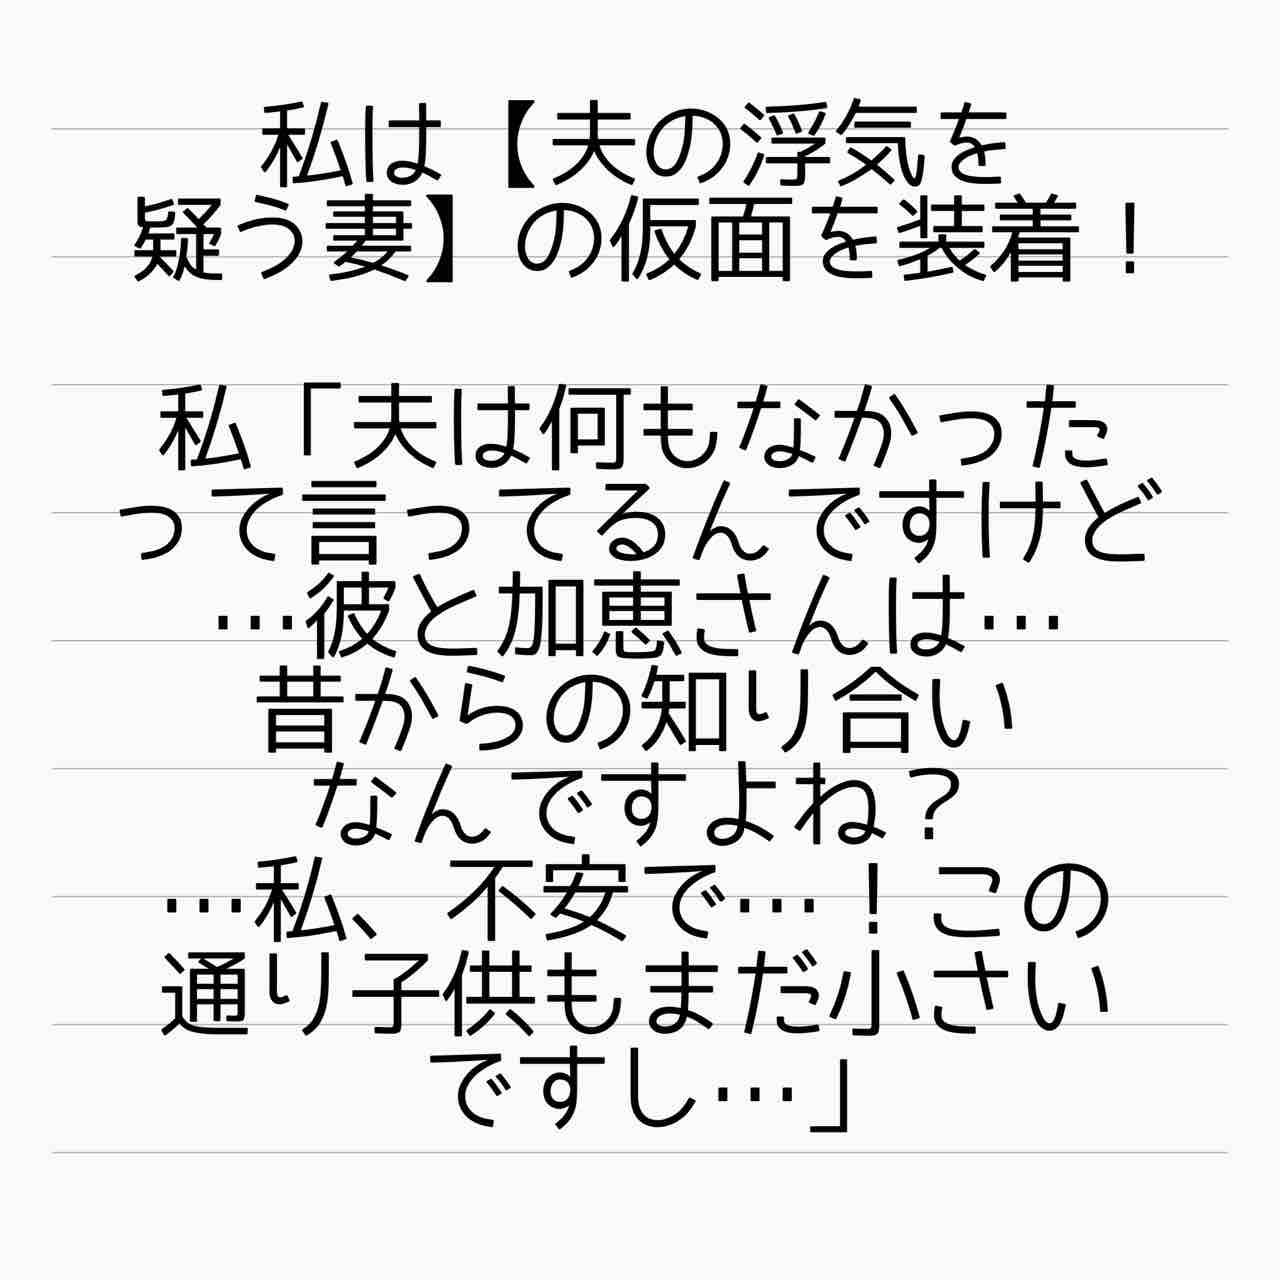 私は【夫の浮気を
疑う妻】の仮面を装着！
私「夫は何もなかった
って言ってるんですけど
…彼と加恵さんは…
昔からの知り合い
なんですよね？
…私、不安で…！この
通り子供もまだ小さい
ですし…」